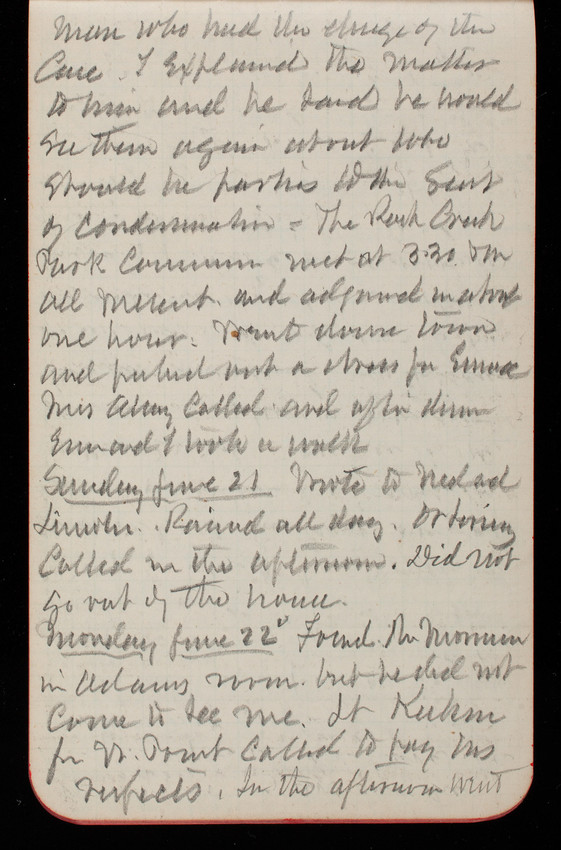 man who had the charge of the
Case. I Explained the matter
to him and he said he would
See them again about who
should be parties to the Suit
of Condemnation = The Rock Creek
Park Commission met at 3.30. Pm
all present. and adjourned in about
one hour. Went down town
and picked out a dress for Emma
Mrs called and after dinner
Emma and I took a walk
Sunday June 21 Wrote to Ned and
Lincoln. Rained all day.
Called in the afternoon. Did not
go out of the house.
Monday June 22d Found
in Adams room. but he did not
Come to see me. Lt
for W. Point called to pay his
respects. In the afternoon went